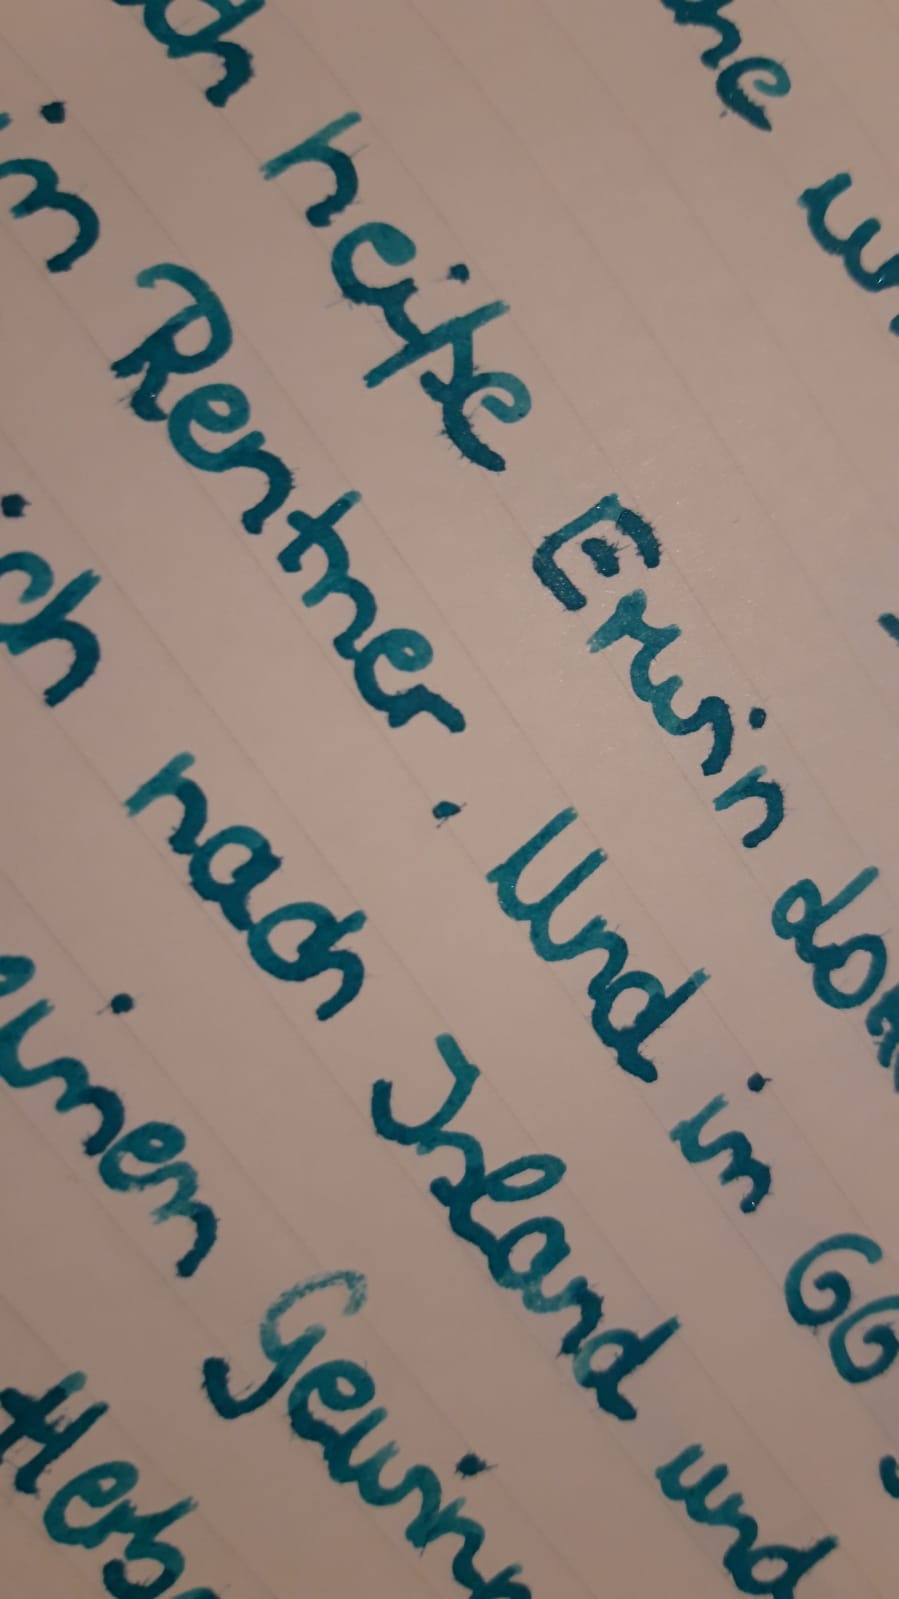 ne
ch heiße Erwin
in Rentner. Und in 66
ich nach Island und
einen Gewin
Herb